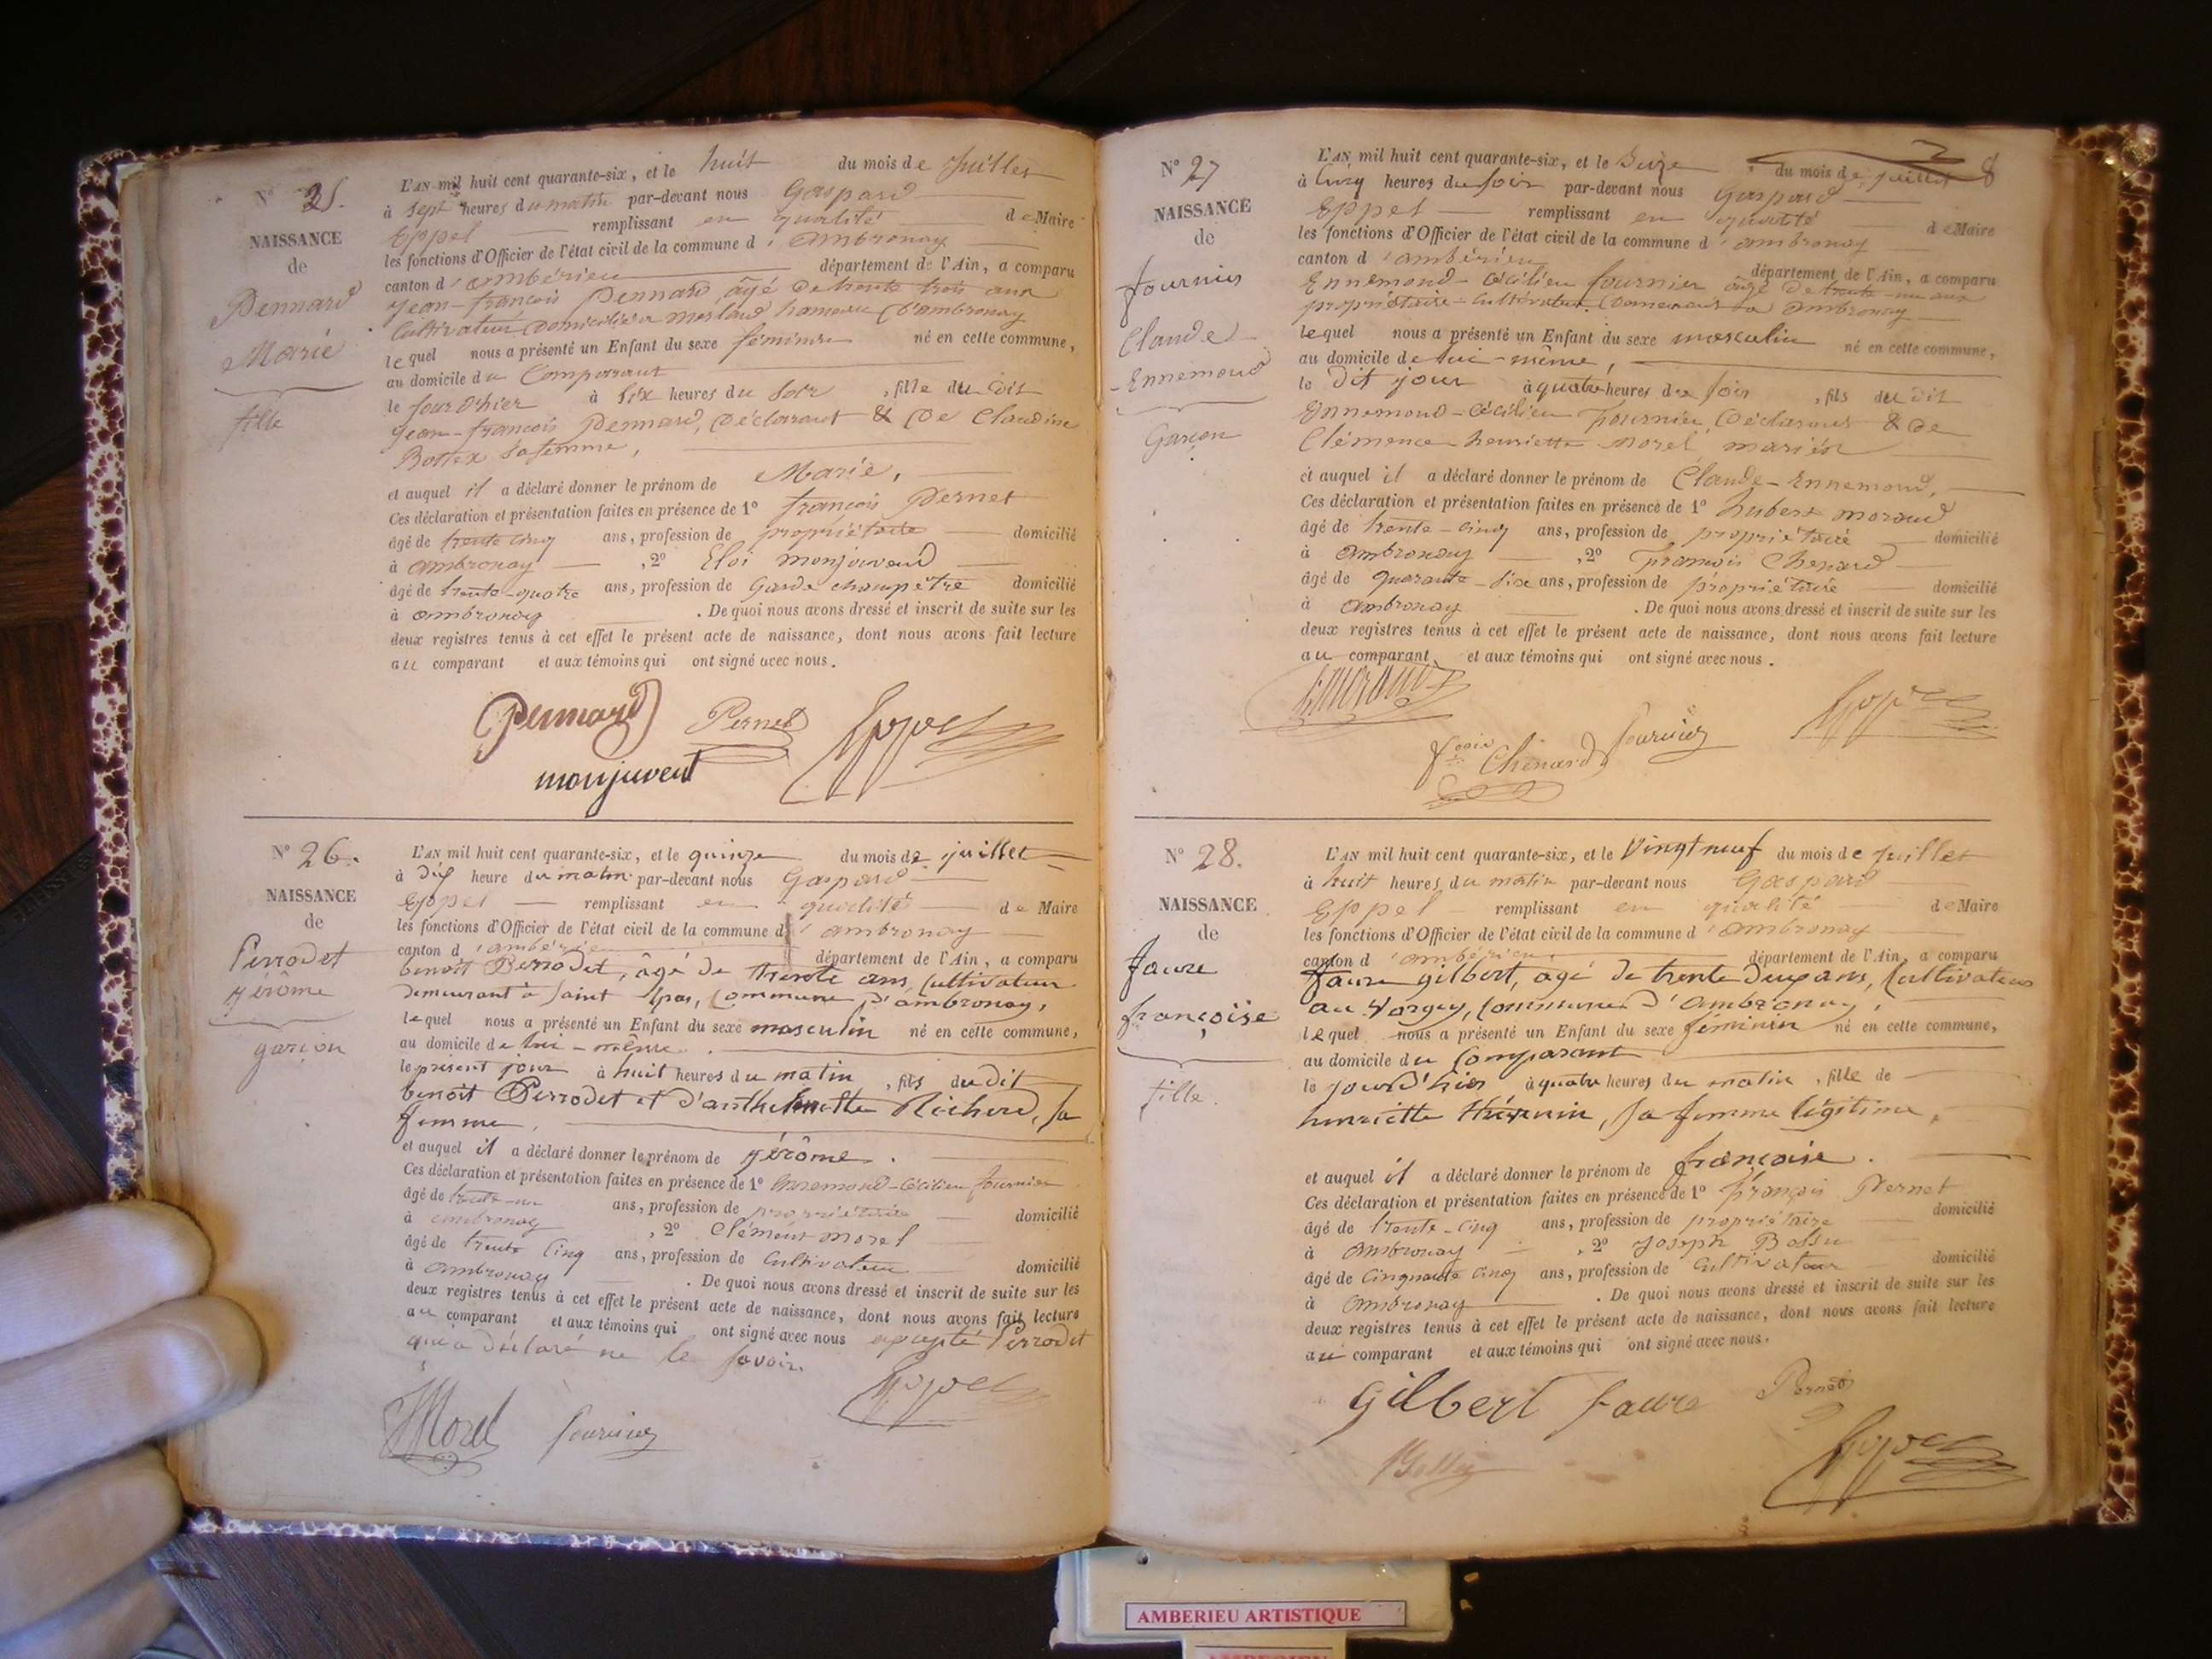 N° 25.
NAISSANCE
de
Pennard
Marie
fille
L'AN mil huit cent quarante-six, et le huit du mois de juillet
à sept heures du matin par-devant nous Gaspard
Eppel remplissant en qualité de Maire
les fonctions d'Officier de l'état civil de la commune d'ambronay
canton d'ambérieu département de l'Ain, a comparu
jean-françois Pennard, âgé de trente trois ans
Cultivateur domicilié a merland hameau d'ambronay
lequel nous a présenté un Enfant du sexe féminin né en cette commune,
au domicile du Comparant
le jour d'hier à six heures du soir, fille du dit
jean-françois Pennard, Déclarant & De Claudine
Bottex sa femme,
et auquel il a déclaré donner le prénom de Marie,
Ces déclaration et présentation faites en présence de 1° françois Pernet
âgé de trente cinq ans, profession de propriétaire domicilié
à ambronay, 2° Eloi monjouvend
âgé de trente-quatre ans, profession de Garde champêtre domicilié
à ambronay. De quoi nous avons dressé et inscrit de suite sur les
deux registres tenus à cet effet le présent acte de naissance, dont nous avons fait lecture
au comparant et aux témoins qui ont signé avec nous.
Pennard Pernet Eppel
monjuvent
N° 26.
NAISSANCE
de
Perrodet
jérôme
garçon
L'AN mil huit cent quarante-six, et le quinze du mois de juillet
à dix heure du matin par-devant nous Gaspard
Eppel remplissant en qualité de Maire
les fonctions d'Officier de l'état civil de la commune d'ambronay
canton d'ambérieu département de l'Ain, a comparu
benoît Perrodet, âgé de trente ans, Cultivateur
demeurant à saint commune d'ambronay,
lequel nous a présenté un Enfant du sexe masculin né en cette commune,
au domicile de lui-même.
le présent jour à huit heures du matin, fils du dit
benoît Perrodet et d'anthelmette Richerd, sa
femme,
et auquel il a déclaré donner le prénom de jérôme.
Ces déclaration et présentation faites en présence de 1° Ennemond-Cécilien fournier
âgé de trente-un ans, profession de propriétaire domicilié
à ambronay, 2° Clément morel
âgé de trente Cinq ans, profession de Cultivateur domicilié
à ambronay. De quoi nous avons dressé et inscrit de suite sur les
deux registres tenus à cet effet le présent acte de naissance, dont nous avons fait lecture
au comparant et aux témoins qui ont signé avec nous excepté Perrodet
qui a déclaré ne le savoir.
Morel fournier Eppel
8
N° 27
NAISSANCE
de
fournier
Claude
Ennemond
Garçon
L'AN mil huit cent quarante-six, et le Seize du mois de juillet
à Cinq heures du soir par-devant nous Gaspard
Eppel remplissant en qualité de Maire
les fonctions d'Officier de l'état civil de la commune d'ambronay
canton d'ambérieu département de l'Ain, a comparu
Ennemond-Cécilien fournier âgé de trente-un ans
propriétaire-Cultivateur Demeurant a ambronay
lequel nous a présenté un Enfant du sexe masculin né en cette commune,
au domicile de lui-même,
le dit jour à quatre heures du soir, fils du dit
Ennemond-Cécilien fournier, Déclarant & de
Clémence henriette morel, mariés
et auquel il a déclaré donner le prénom de Claude-Ennemond,
Ces déclaration et présentation faites en présence de 1° hubert morand
âgé de trente-cinq ans, profession de propriétaire domicilié
à ambronay, 2° françois Chenard
âgé de quarante-six ans, profession de propriétaire domicilié
à ambronay. De quoi nous avons dressé et inscrit de suite sur les
deux registres tenus à cet effet le présent acte de naissance, dont nous avons fait lecture
au comparant et aux témoins qui ont signé avec nous.
h morand Eppel
Chenard fournier
N° 28.
NAISSANCE
de
faure
françoise
fille.
L'AN mil huit cent quarante-six, et le Vingt neuf du mois de juillet
à huit heures du matin par-devant nous Gaspard
Eppel remplissant en qualité de Maire
les fonctions d'Officier de l'état civil de la commune d'ambronay
canton d'ambérieu département de l'Ain, a comparu
faure gilbert, agé de trente deux ans, Cultivateur
au Vorgey, Commune d'ambronay,
lequel nous a présenté un Enfant du sexe féminin né en cette commune,
au domicile du Comparant
le jour d'hier à quatre heures du matin, fille de
henriette, sa femme légitime,
et auquel il a déclaré donner le prénom de françoise.
Ces déclaration et présentation faites en présence de 1° françois Pernet
âgé de trente-cinq ans, profession de propriétaire domicilié
à ambronay, 2° Joseph Bossu
âgé de Cinquante cinq ans, profession de Cultivateur domicilié
à ambronay. De quoi nous avons dressé et inscrit de suite sur les
deux registres tenus à cet effet le présent acte de naissance, dont nous avons fait lecture
au comparant et aux témoins qui ont signé avec nous.
gilbert faure Pernet
Eppel
AMBERIEU ARTISTIQUE